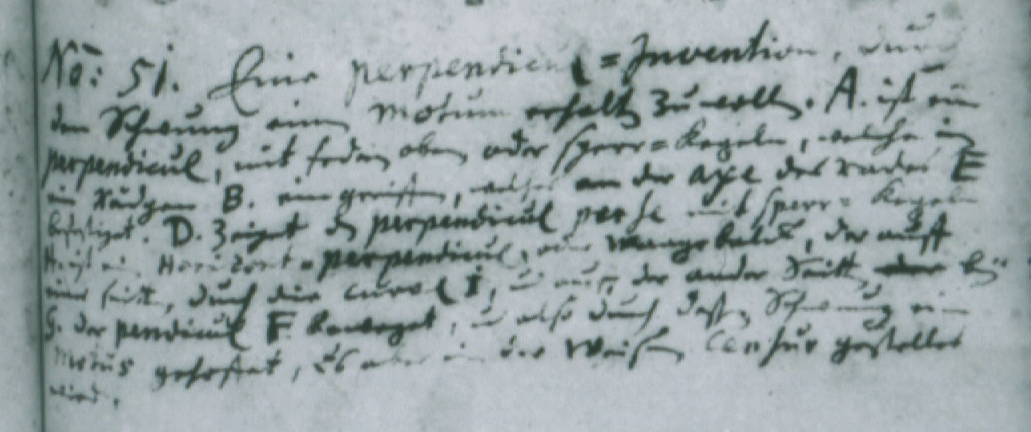 No: 51. Eine perpendicul = Invention, durch
den Schwung einen motum erhalten zu wollen. A. ist ein
perpendicul, mit Federn oben oder sperr = Kegeln, welche in
ein Rädgen B. eingreiffen, welches an der axe des rades E
befestiget. D. Zeiget das perpendicul per se mit sperr = Kegeln
H. ist ein Horizont = perpendicul, oder Waagebalken, der auff
einer seite, durch die curve I, u auff der ander Seitte bei
G. der pendicul F beweget, u also durch dessen Schwung ein
Motus geschaffet, Es aber in der Weisen Censur gestellet
wird.